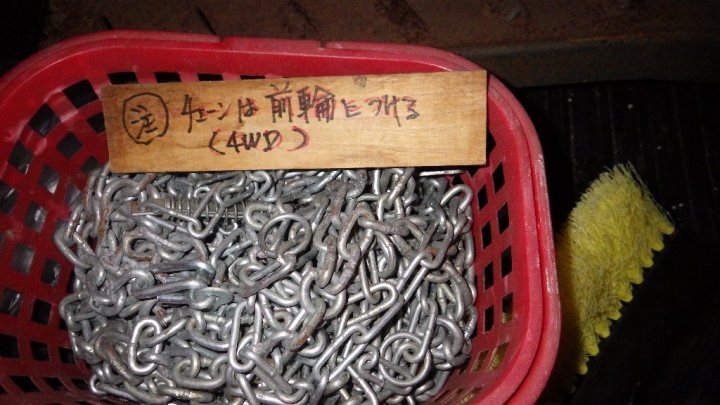 注 チェーンは前輪につける
(4WD)